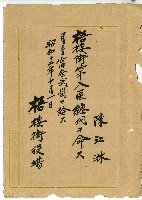 陳江淋
梧棲街第八區總代ヲ命ス
月手當金貳圓ヲ給ス
昭和十五年十月一日
梧棲街役場